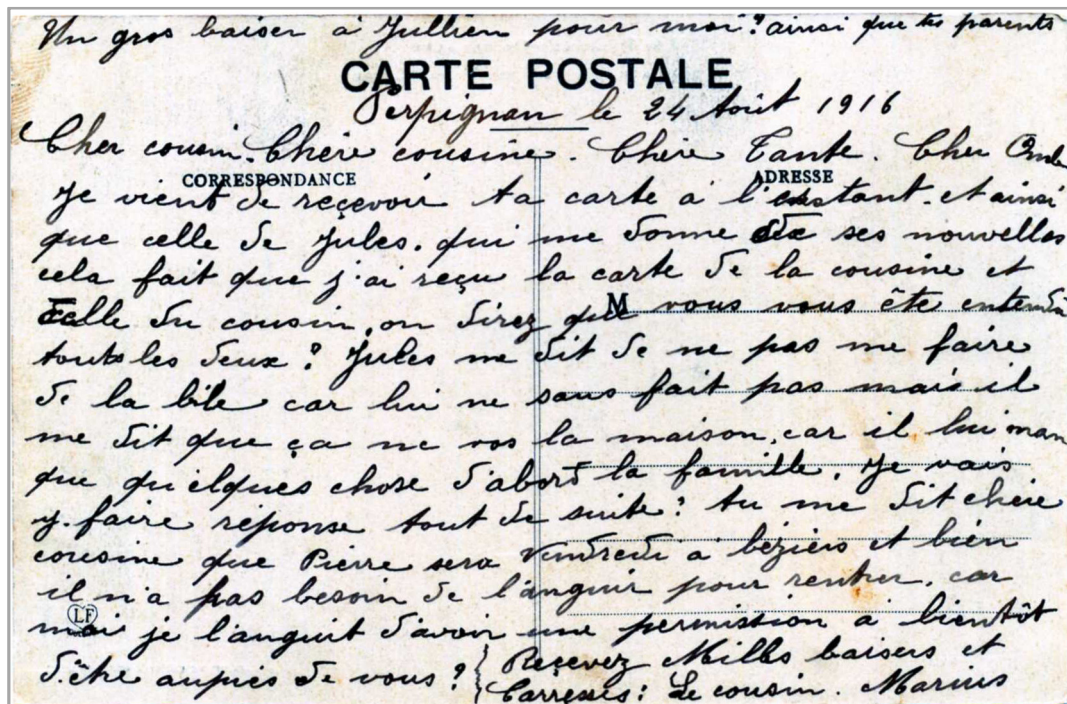 Un gros baiser à Jullien pour moi? ainsi que tes parents
CARTE POSTALE
Perpignan le 24 Août 1916
Cher cousin. Chère cousine. Chère Tante. Cher Oncle
CORRESPONDANCE
ADRESSE
Je vient de reçevoir ta carte à l'instant. et ainsi
que celle de Jules. qui me donne de ses nouvelles
cela fait que j'ai reçu la carte de la cousine et
M
celle du cousin, on direz que vous vous ête entendu
touts les deux? Jules me dit de ne pas me faire
de la bile car lui ne sans fait pas mais il
me dit que ça ne vos la maison, car il lui man
que quelques chose d'abord la famille. Je vais
y faire réponse tout de suite? tu me dit chère
cousine que Pierre sera Vendredi à béziers et bien
il n'a pas besoin de l'anguir pour rentrer. car
LF
moi je l'anguit d'avoir une permission à bientôt
d'être auprès de vous? } Reçevez Mills baisers et
Carresses: Le cousin. Marius